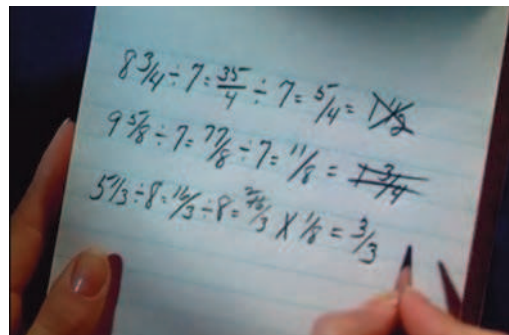 8 3/4 ÷ 7 = 35/4 ÷ 7 = 5/4 =
9 5/8 ÷ 7 = 77/8 ÷ 7 = 11/8 = 1 3/4
5 1/3 ÷ 8 = 16/3 ÷ 8 = 16/3 X 1/8 = 3/3